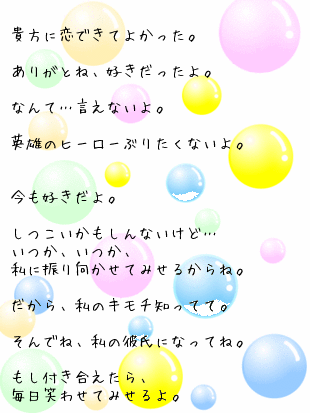 貴方に恋できてよかった。
ありがとね、好きだったよ。
なんて…言えないよ。
英雄のヒーローぶりたくないよ。
今も好きだよ。
しつこいかもしんないけど…
いつか、いつか、
私に振り向かせてみせるからね。
だから、私のキモチ知ってて。
そんでね、私の彼氏になってね。
もし付き合えたら、
毎日笑わせてみせるよ。